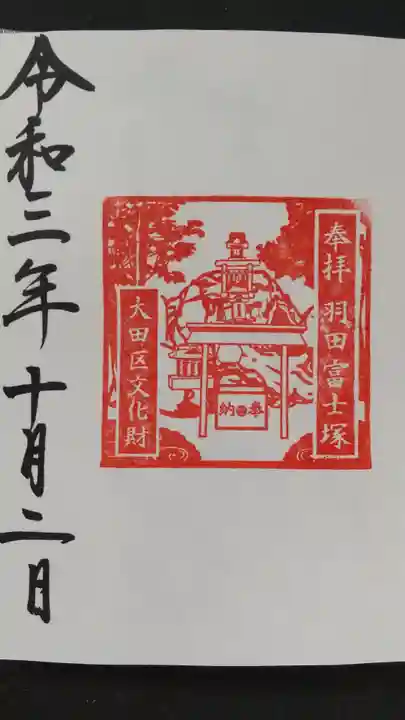 奉拝 羽田富士塚
大田区文化財
奉納
令和三年十月二日